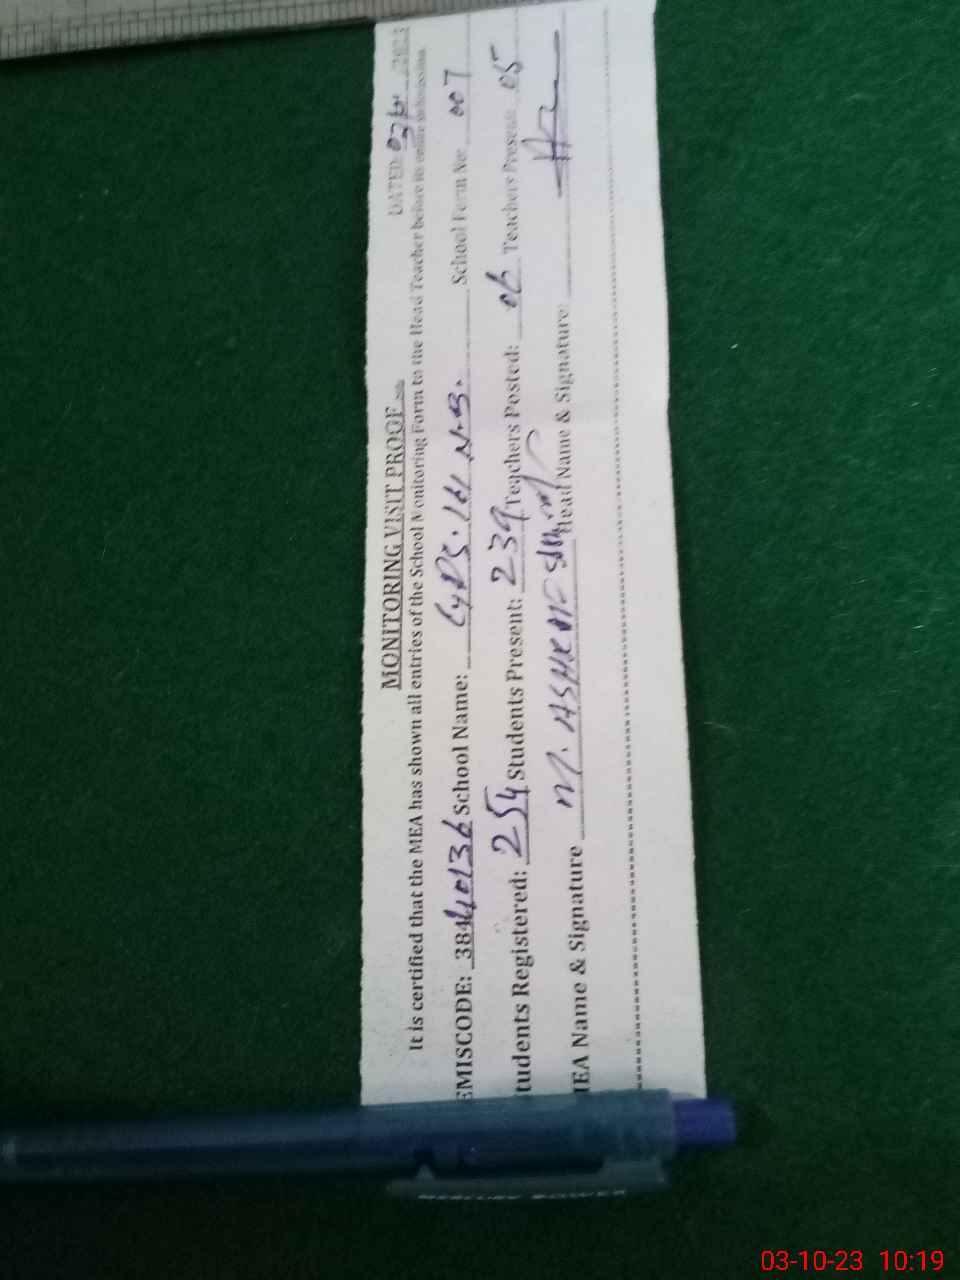 MONITORING VISIT PROOF
DATED: 03/10/2023
It is certified that the MEA has shown all entries of the School Monitoring Form to the Head Teacher before its online submission.
EMISCODE: 38440136 School Name: School Form No: 007
Students Registered: 254 Students Present: 239 Teachers Posted: 06 Teachers Present: 05
MEA Name & Signature M. ASHRAF Head Name & Signature:
03-10-23 10:19